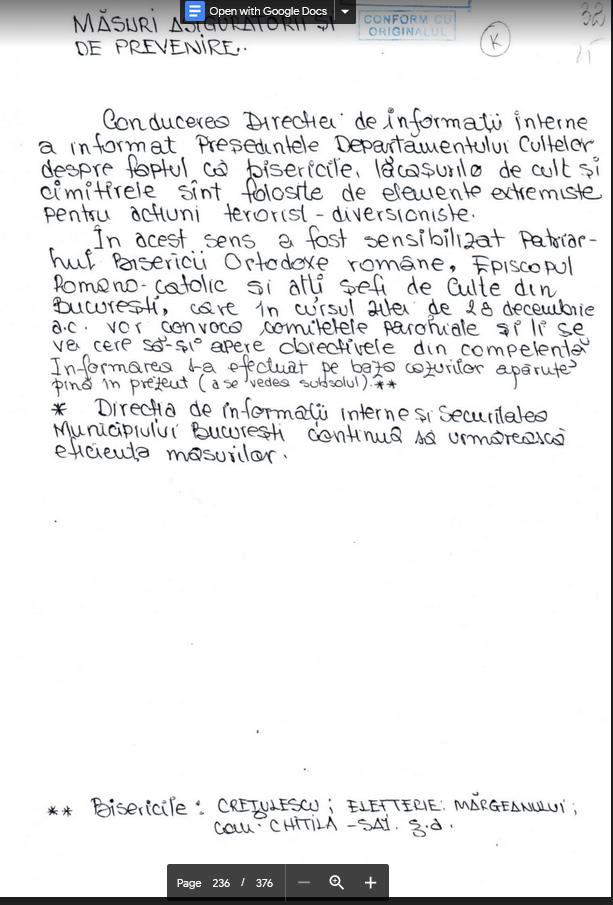 Open with Google Docs
MĂSURI ASIGURATORII ȘI
DE PREVENIRE.
CONFORM CU
ORIGINALUL
K
32
15
Conducerea Direcției de informații interne
a informat Președintele Departamentului Cultelor
despre faptul că bisericile, lăcașurile de cult și
cimitirele sînt folosite de elemente extremiste
pentru acțiuni terorist-diversioniste.
În acest sens a fost sensibilizat Patriar-
hul Bisericii Ortodoxe române, Episcopul
Romano-catolic și alți șefi de Culte din
București, care în cursul zilei de 28 decembrie
a.c. vor convoca comitetele parohiale și li se
va cere să-și apere obiectivele din competență
Informarea s-a efectuat pe baza cazurilor apărute
pînă în prezent (a se vedea subsolul).**
* Direcția de informații interne și Securitatea
Municipiului București continuă să urmărească
eficiența măsurilor.
** Bisericile: CREȚULESCU; ELEFTERIE: MĂRGEANULUI;
com. CHITILA - SAI. ș.a.
Page 236 / 376